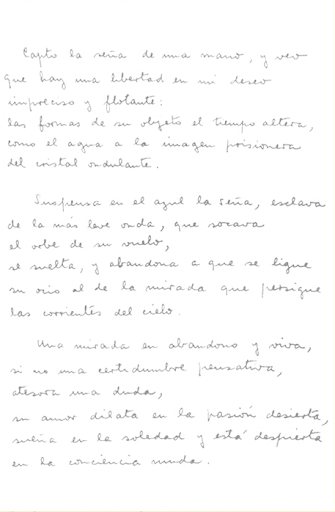 Capto la seña de una mano, y veo
que hay una libertad en mi deseo
impreciso y flotante:
las formas de su objeto el tiempo altera,
como el agua a la imagen prisionera
del cristal ondulante.
Suspensa en el azul la seña, esclava
de la más leve onda, que socava
el orbe de su vuelo,
se suelta, y abandona a que se ligue
su ocio al de la mirada que persigue
las corrientes del cielo.
Una mirada en abandono y viva,
si no una certidumbre pensativa,
atesora una duda,
su amor dilata en la pasión desierta,
sueña en la soledad y está despierta
en la conciencia muda.